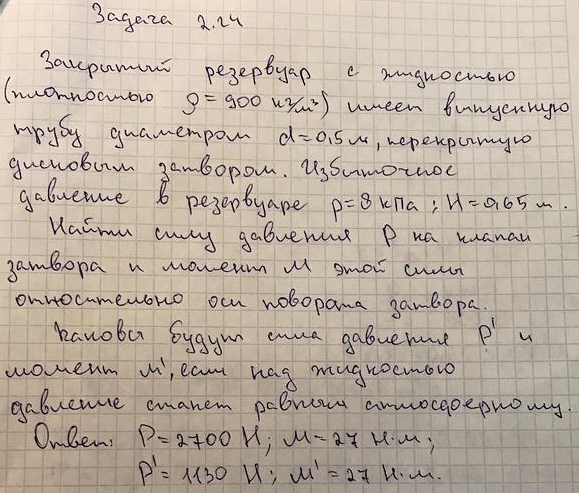 Задача 2.24
Закрытый резервуар с жидкостью
(плотностью ρ = 900 кг/м³) имеет выпускную
трубу диаметром d = 0,5 м, перекрытую
дисковым затвором. Избыточное
давление в резервуаре p = 8 кПа ; H = 0,65 м.
Найти силу давления P на клапан
затвора и момент M этой силы
относительно оси поворота затвора.
Каковы будут сила давления P' и
момент M', если над жидкостью
давление станет равным атмосферному.
Ответ: P = 2700 Н; M = 27 Н·м;
P' = 1130 Н; M' = 27 Н·м.